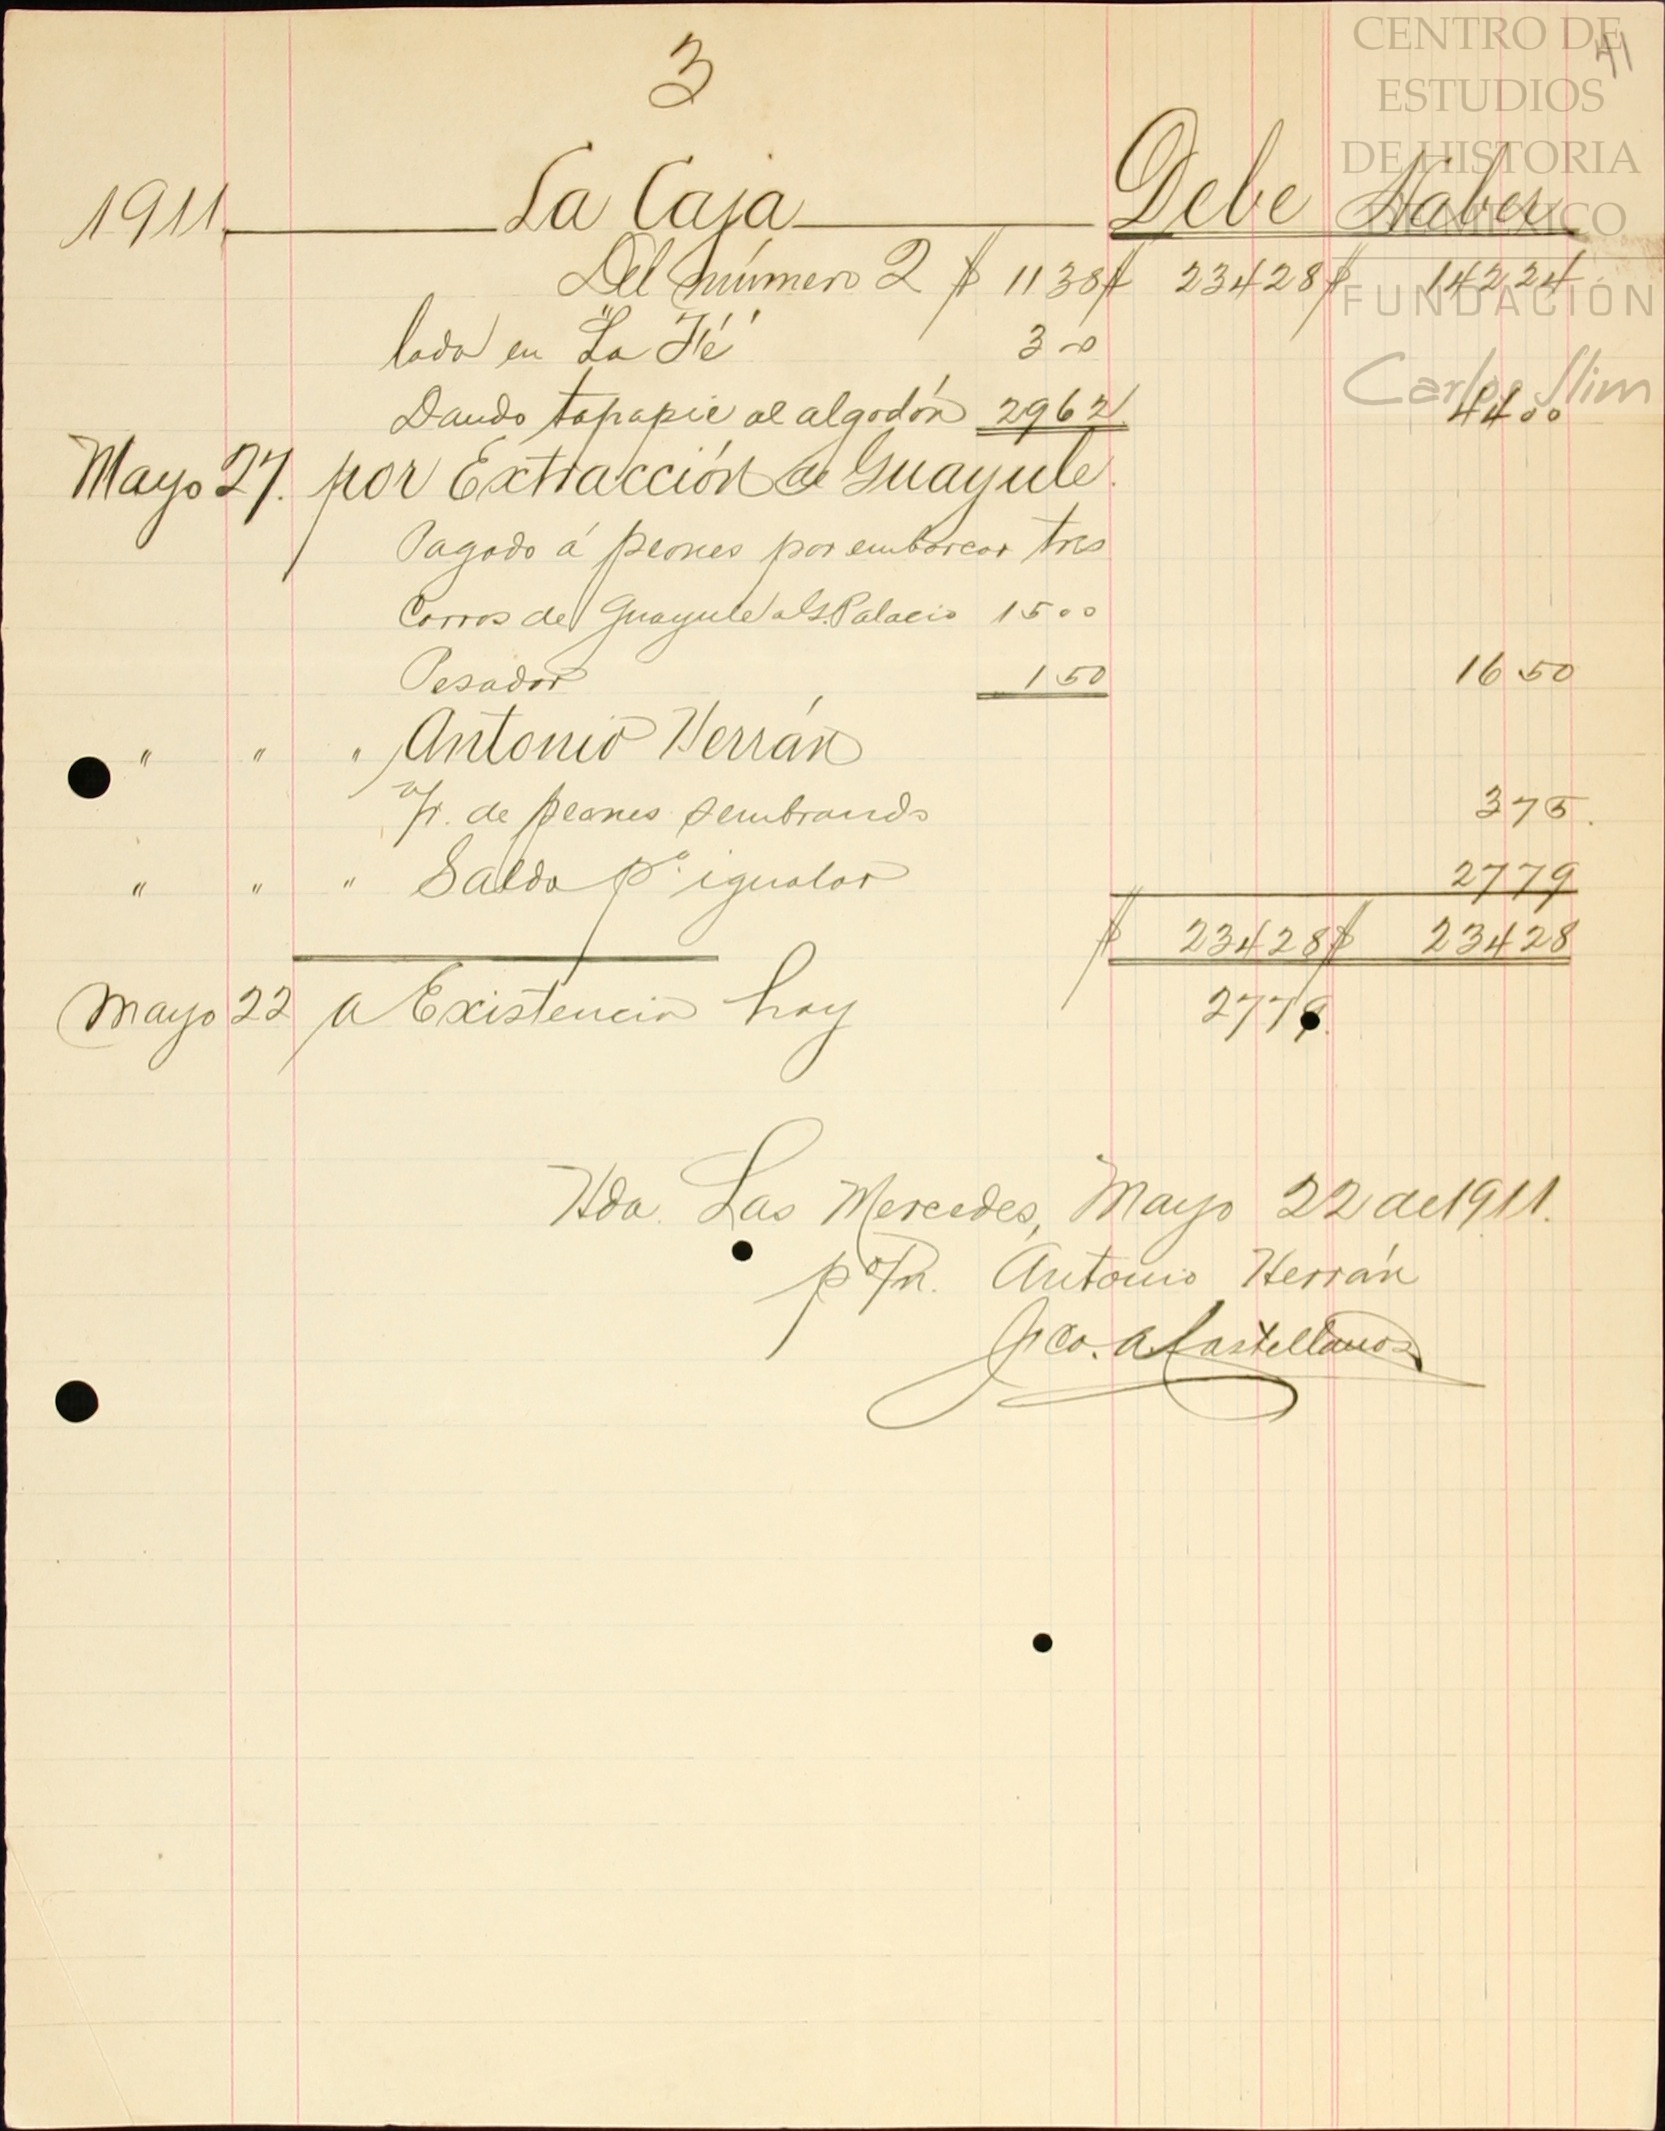 CENTRO DE
ESTUDIOS
DE HISTORIA
DE MEXICO
FUNDACIÓN
Carlos Slim
41
3
1911 La Caja Debe Haber
Del número 2 $ 1138 $ 23428 $ 14224
lada en "La Fé" 3 00
Dando tapapie al algodón 2962 4400
Mayo 27. por Extracción de Guayule.
Pagado á peones por embarcar tres
Carros de Guayule a G. Palacio 1500
Pesador 150 1650
" " " Antonio Herrán
de peones sembrando 375.
" " " Saldo pa. igualar 2779
$ 23428 $ 23428
Mayo 22 a Existencia hoy 2779.
Hda. Las Mercedes, Mayo 22 de 1911.
p Antonio Herrán
Fco. A Castellanos